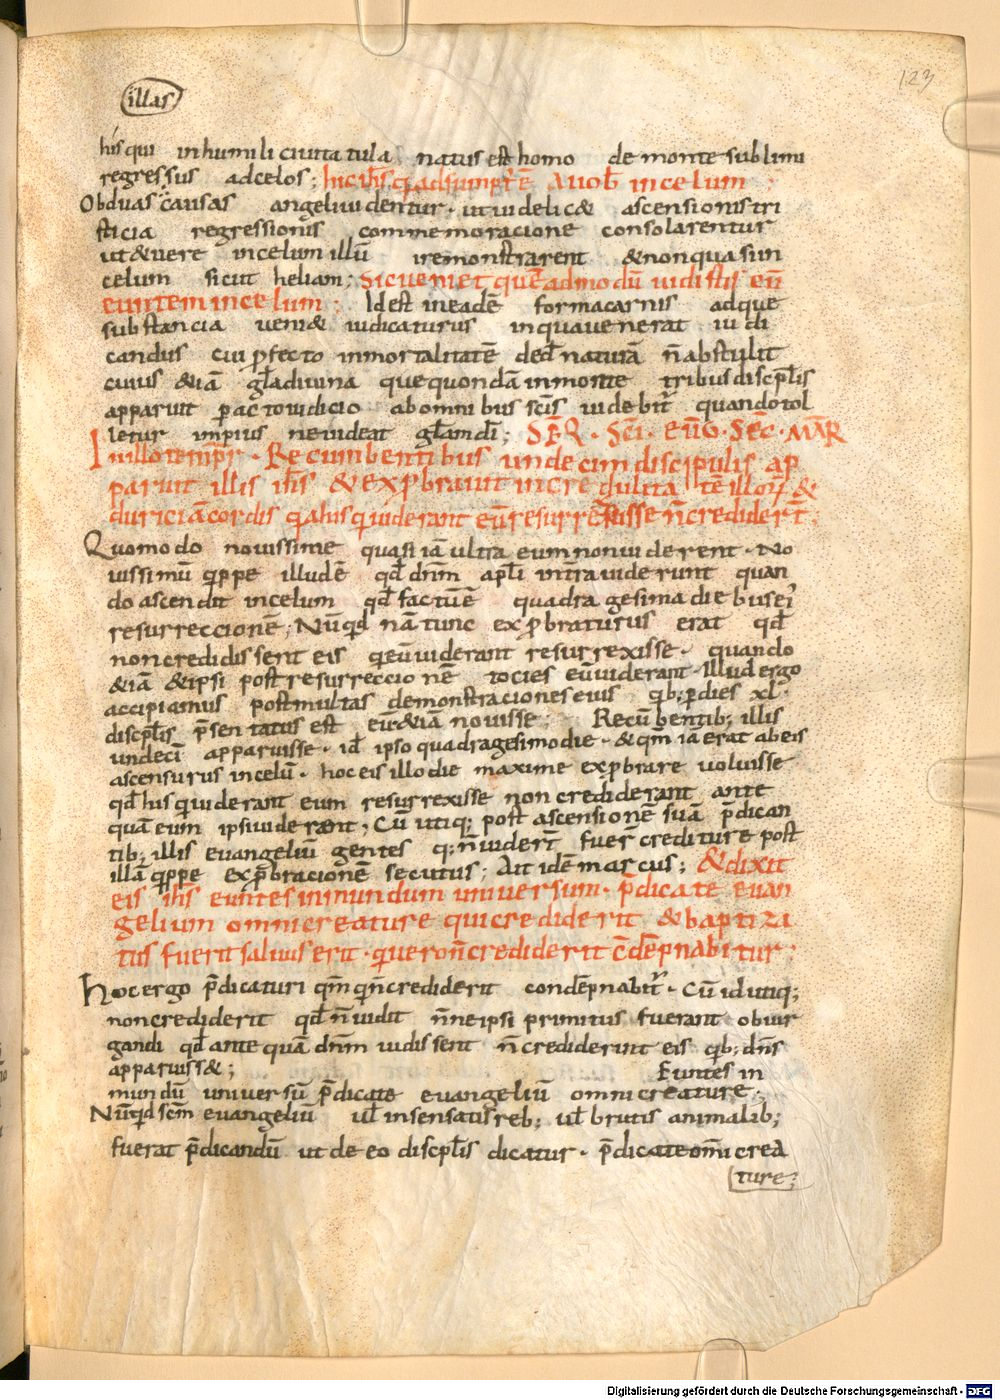 123
illas
his qui in humili ciuita tula natus est homo de monte sublimi
regressus ad celos; hic ihs q adsumptꝰ ē a uob in celum;
Ob duas causas angeli uidentur · ut uidelic& ascensionis tri
sticia regressionis commemoracione consolarentur
ut & uere in celum illū ire monstrarent & non quasi in
celum sicut heliam; sic ueniet quēadmodū uidistis eū
euntem in celum; Id est in eadē forma carnis adque
substancia ueni& iudicaturus in qua uenerat iudi
candus cui ꝓfecto inmortalitatē ded̄ naturā n̄ abstulit
cuius &iā gl̄a diuina que quondā in monte tribus discipl̄is
apparuit peracto iudicio ab omnibus sc̄is uidebit̄ quando tol
letur impius ne uideat gl̄am dī; SEQ · SCI · EUG · SEC · MAR
In illo tempr̄ · Recumbentibus undecim discipulis ap
paruit illis ih̄s & exprobrauit incredulitatē illoꝝ &
duriciā cordis q̄a his qui uiderant eū resurrexisse n̄ credider̄t;
Quomodo nouissime quasi iā ultra eum non uiderent · No
uissimū q̄ppe illud ē qd̄ dn̄m apl̄i in terra uiderunt quan
do ascendit in celum qd̄ factū ē quadragesima die bus ei
resurreccionē; Nūqd nā tunc exprobraturus erat qd̄
non credidissent eis q eū uiderant resurrexisse · quando
&iā & ipsi post resurreccionē tocies eū uiderant · Illud ergo
accipiamus post multas demonstraciones eius qb; p dies xl ·
discpl̄is p̄sentatus est eū &iā nouisse; Recūbentib; illis
undecī apparuisse · id ipso quadragesimo die · & qm̄ iā erat ab eis
ascensurus in celū · hoc eis illo die maxime exprobrare uoluisse
qd̄ his q uiderant eum resurrexisse non crediderant ante
quā eum ipsi uiderant, Cū utiq; post ascensionē suā p̄dican
tib; illis euangeliū gentes q; n̄ uider̄t fuer̄ crediture post
illā q̄ppe exprobracionē secutus; Ait idē marcus; & dixit
eis ih̄s euntes in mundum uniuersum · p̄dicate euan
gelium omni creature qui crediderit & baptiza
tus fuerit saluus erit · qui uero n̄ crediderit c̄dēpnabitur;
Hoc ergo p̄dicaturi qm̄ q n̄ crediderit condēpnabit̄ · Cū id utiq;
non crediderit qd̄ n̄ uidit n̄ne ipsi primitus fuerant obiur
gandi qd̄ ante quā dn̄m uidissent n̄ crediderint eis qb; dn̄s
apparuiss&; Euntes in
mundū uniuersū p̄dicate euangeliū omni creature;
Nūqd sc̄m euangeliū ul̄ insensatis reb; ul̄ brutis animalib;
fuerat p̄dicandū ut de eo discpl̄is dicatur · p̄dicate om̄i crea
ture;
Digitalisierung gefördert durch die Deutsche Forschungsgemeinschaft - DFG